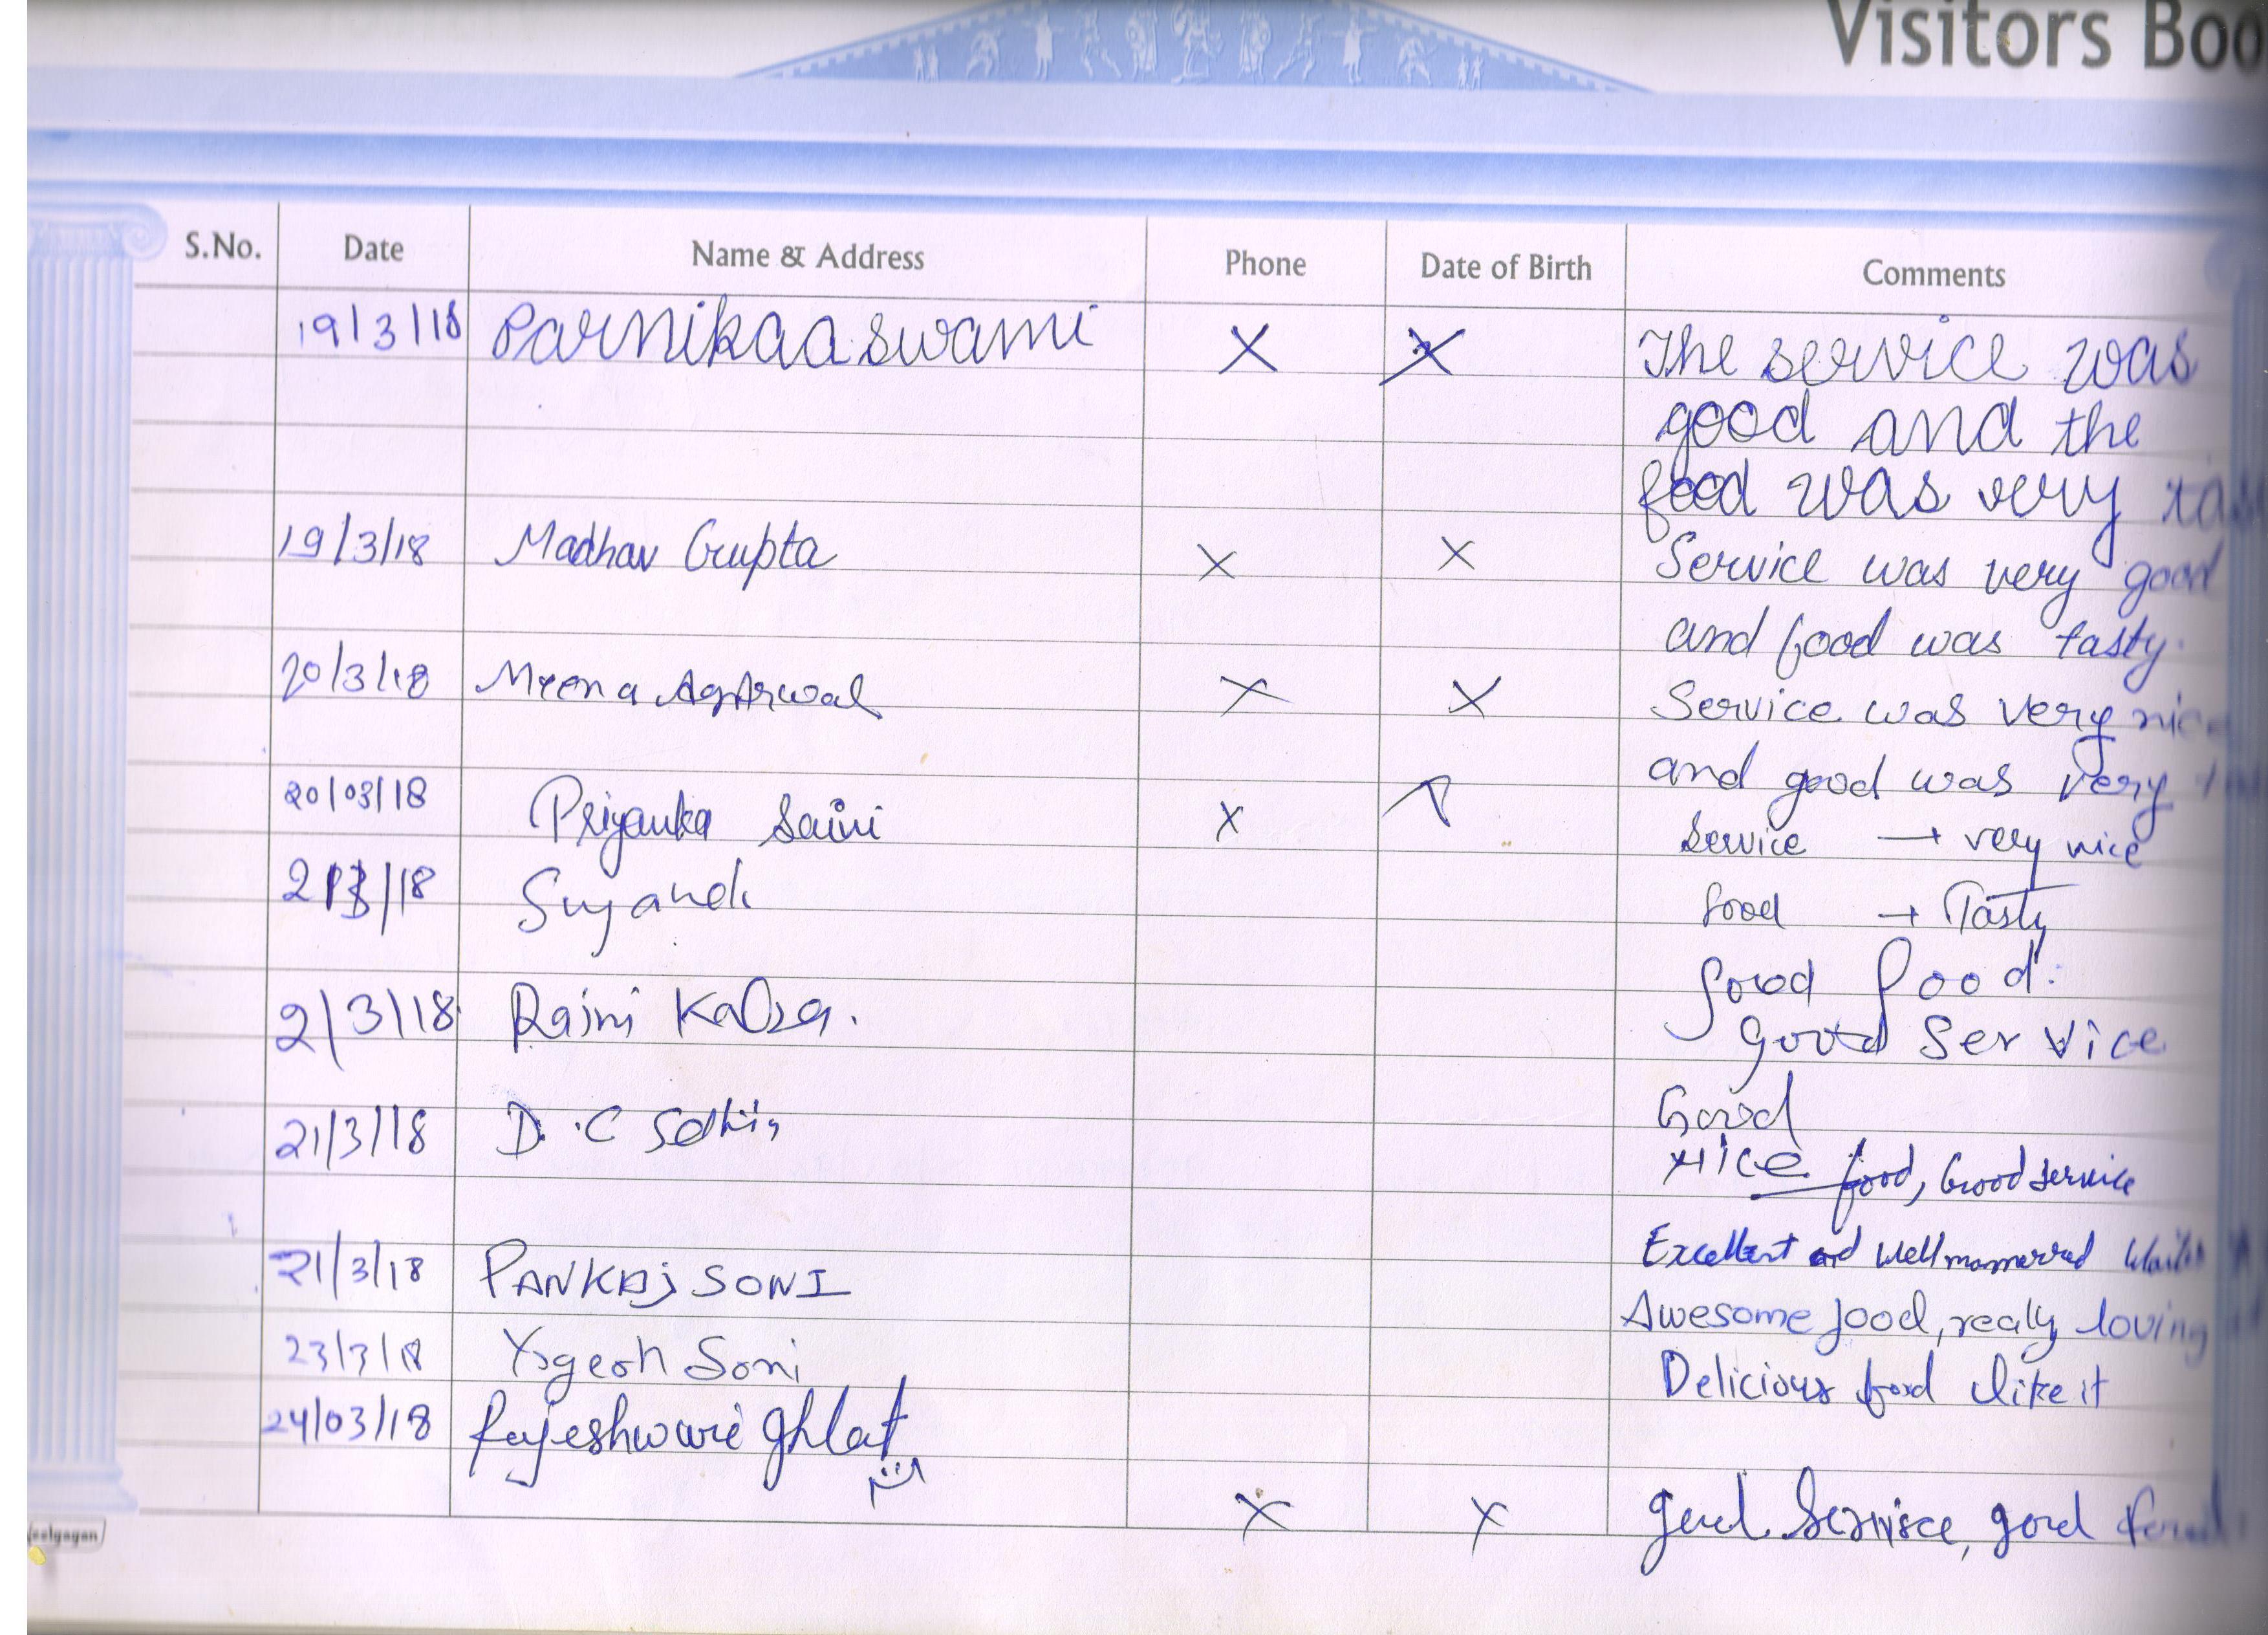 Visitors Boo
S.No. Date Name & Address Phone Date of Birth Comments
19/3/18 Parnikaa swami X X The service was
good and the
food was very
19/3/18 Madhav Gupta X X Service was very good
and food was tasty.
20/3/18 Meena Agarwal X X Service was very nice
and good was very
20/03/18 Priyanka Saini X service → very nice
21/3/18 food → Tasty
good food.
2/3/18 Rajni Kalra. good Service
21/3/18 D.C Good
Nice food, Good service
21/3/18 PANKAJ SONI Excellent and Well mannered
Awesome food, really loving
23/3/18 Yogesh Soni Delicious food like it
24/03/18 Rajeshwari
X X good Service, good food
neelgagan